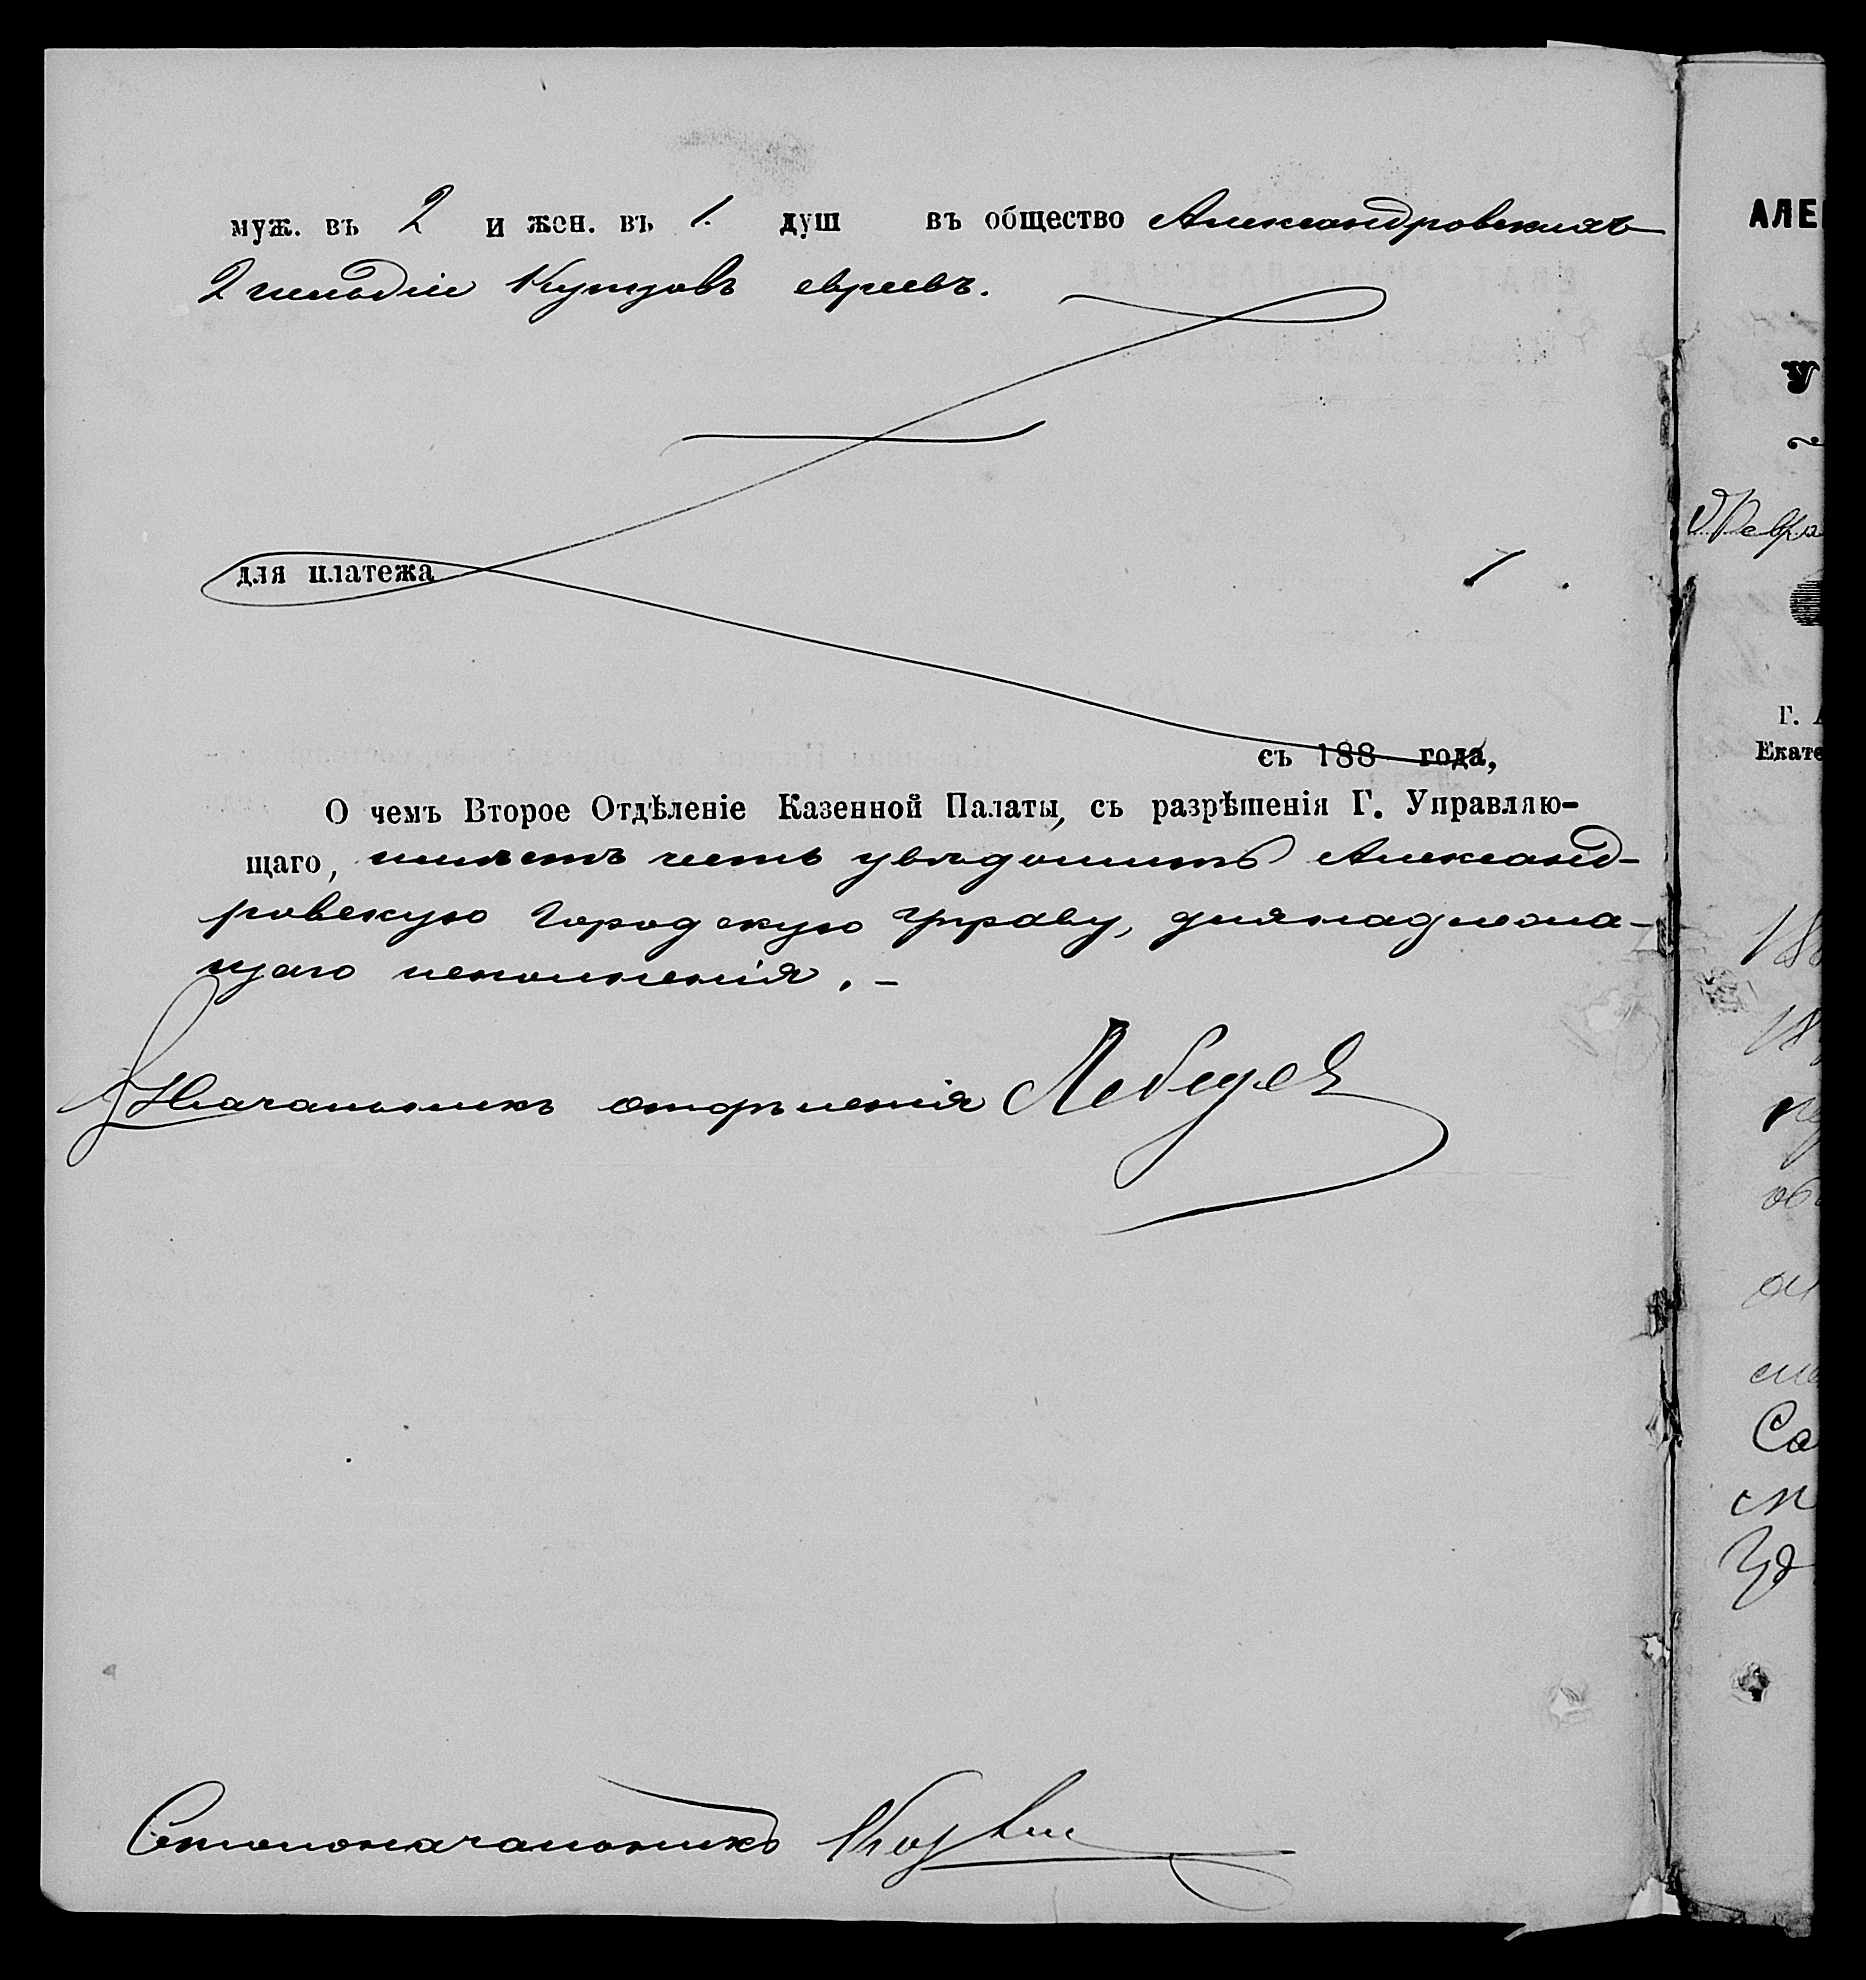 муж. въ 2 и жен. въ 1. душ въ общество Александровскихъ
2 гильдіи Купцовъ евреевъ.
для платежа
съ 188 года,
О чемъ Второе Отдѣленіе Казенной Палаты, съ разрѣшенія Г. Управляю-
щаго, имѣетъ честь увѣдомить Александ-
ровскую Городскую Управу, для надлежа-
щаго исполненія. –
Начальникъ отдѣленія Лебедев
Столоначальникъ
АЛЕ
У
Февра
г.
Екате
18
18
об
Са